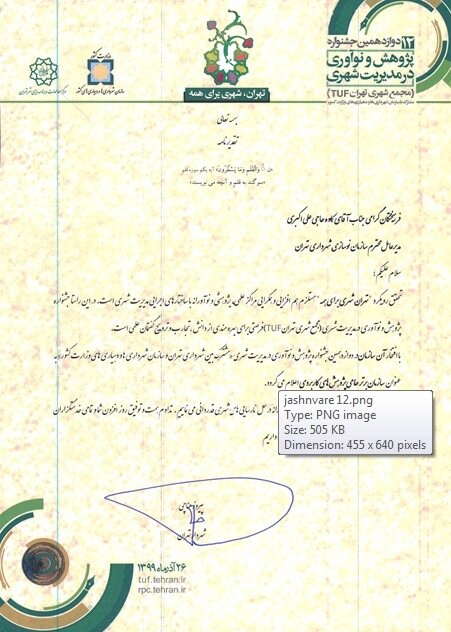 ۱۲ دوازدهمین جشنواره
پژوهش و نوآوری
در مدیریت شهری
(مجمع شهری تهران TUF)
وزارت کشور
سازمان شهرداری‌ها و دهیاری‌های کشور
تهران، شهری برای همه
بسمه تعالی
تقدیرنامه
«ن وَالْقَلَمِ وَمَا یَسْطُرُونَ» آیه یکم سوره قلم
«سوگند به قلم و آنچه می نویسند»
فرهیخته گرامی جناب آقای کاوه حاجی علی اکبری
مدیرعامل محترم سازمان نوسازی شهرداری تهران
سلام علیکم؛
تحقق رویکرد "تهران شهری برای همه" مستلزم هم افزایی و همگرایی مراکز علمی، پژوهشی و نوآورانه با ساختارهای اجرایی مدیریت شهری است. در این راستا جشنواره
پژوهش و نوآوری در مدیریت شهری (مجمع شهری تهران TUF) فرصتی برای بهره مندی از دانش، تجارب و ترویج گفتمان علمی است.
با افتخار آن سازمان در دوازدهمین جشنواره پژوهش و نوآوری در مدیریت شهری مشترک بین شهرداری تهران و سازمان شهرداری ها و دهیاری های وزارت کشور به
عنوان سازمان برتر حامی پژوهش های کاربردی اعلام می گردد.
در حل نارسایی های شهری قدردانی می نماییم، تداوم همت و توفیق روز افزون شما و تمامی خدمتگزاران
داریم
jashnvare 12.png
Type: PNG image
Size: 505 KB
Dimension: 455 x 640 pixels
پیروز حناچی
شهردار تهران
۲۶ آذرماه ۱۳۹۹
tuf.tehran.ir
rpc.tehran.ir